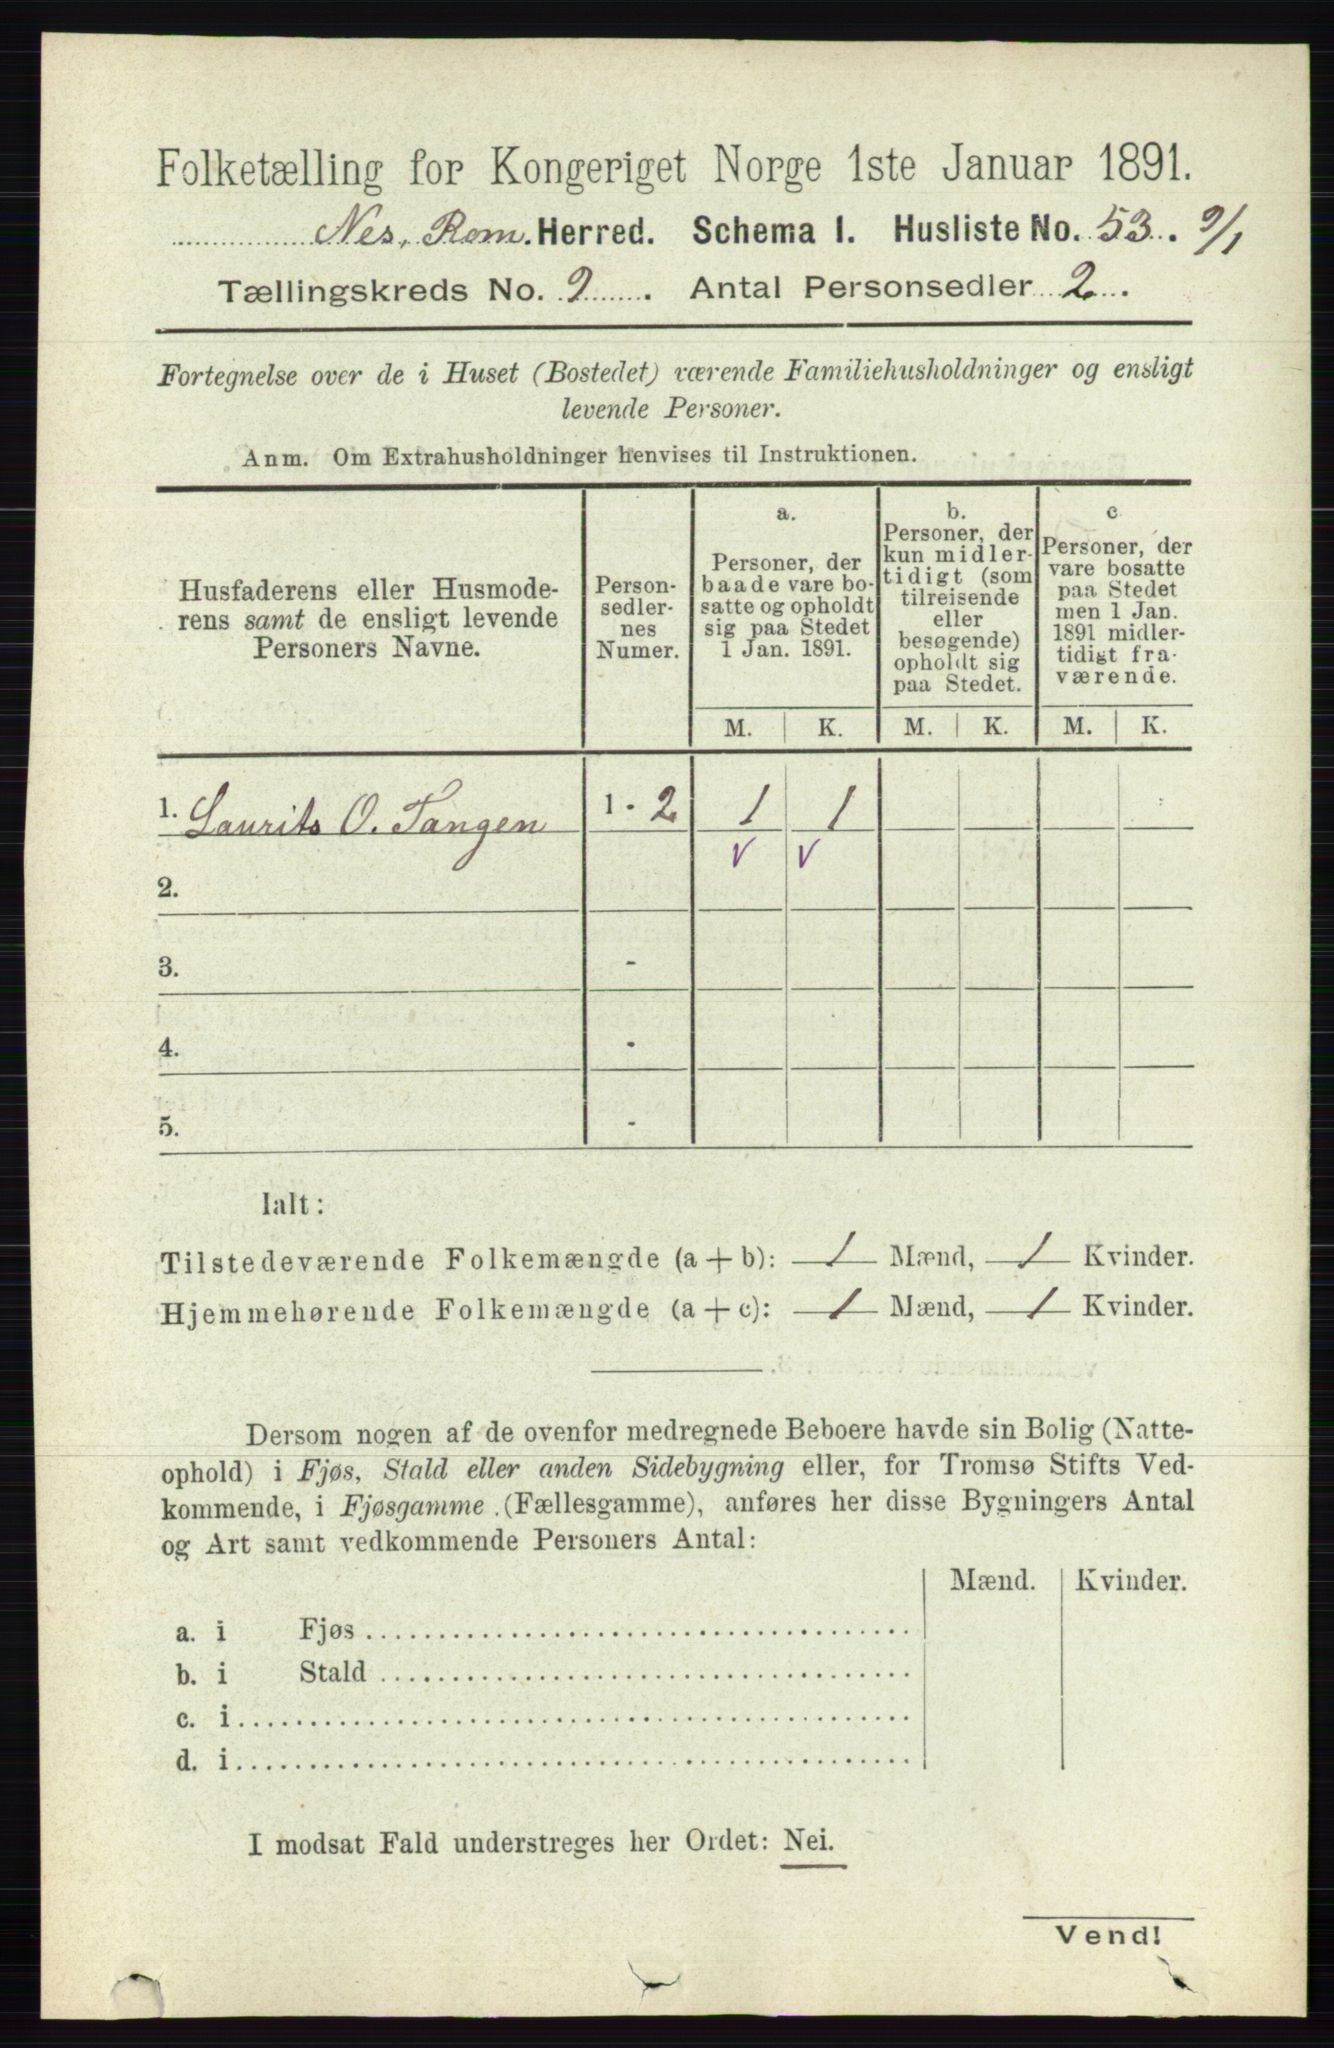 Folketælling for Kongeriget Norge 1ste Januar 1891.
Nes, Rom. Herred. Schema I. Husliste No. 53. 9/1
Tællingskreds No. 9. Antal Personsedler 2.
Fortegnelse over de i Huset (Bostedet) værende Familiehusholdninger og ensligt
levende Personer.
Anm. Om Extrahusholdninger henvises til Instruktionen.
Husfaderens eller Husmode-
rens samt de ensligt levende
Personers Navne.
Person-
sedler-
nes
Numer.
a.
Personer, der
baade vare bo-
satte og opholdt
sig paa Stedet
1 Jan. 1891.
b.
Personer, der
kun midler-
tidigt (som
tilreisende
eller
besøgende)
opholdt sig
paa Stedet.
c
Personer, der
vare bosatte
paa Stedet
men 1 Jan.
1891 midler-
tidigt fra-
værende.
M. K. M. K. M. K.
1. Laurits O. Tangen 1 - 2 1 1
v v
2.
3. -
4. -
5. -
Ialt:
Tilstedeværende Folkemængde (a + b): 1 Mænd, 1 Kvinder.
Hjemmehørende Folkemængde (a + c): 1 Mænd, 1 Kvinder.
Dersom nogen af de ovenfor medregnede Beboere havde sin Bolig (Natte-
ophold) i Fjøs, Stald eller anden Sidebygning eller, for Tromsø Stifts Ved-
kommende, i Fjøsgamme (Fællesgamme), anføres her disse Bygningers Antal
og Art samt vedkommende Personers Antal:
Mænd. Kvinder.
a. i Fjøs
b. i Stald
c. i
d. i
I modsat Fald understreges her Ordet: Nei.
Vend!